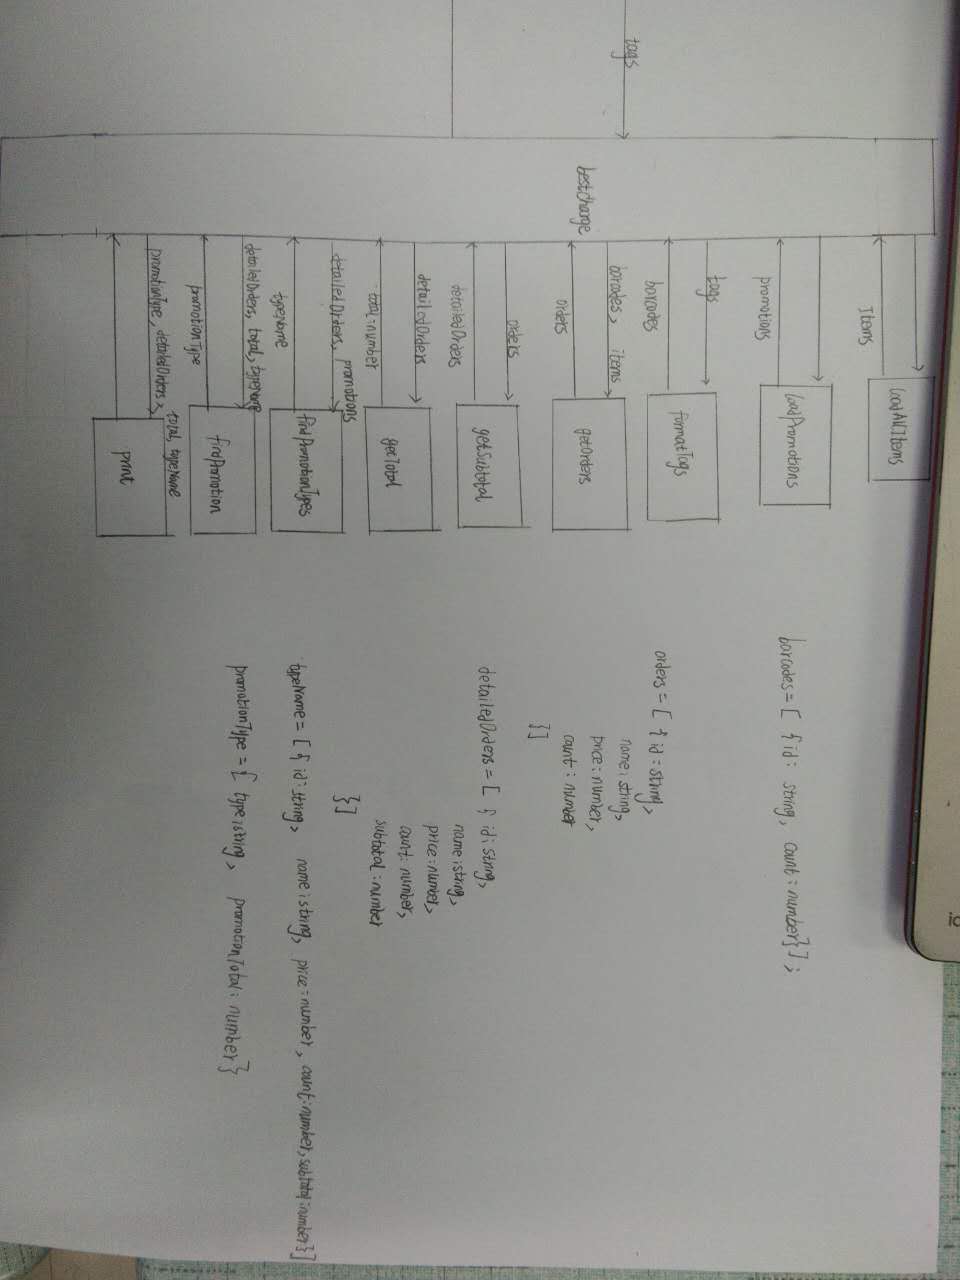 tags
bestCharge
Items
loadAllItems
promotions
loadPromotions
tags
barcodes
formatTags
barcodes, items
orders
getOrders
orders
detailedOrders
getSubtotal
detailedOrders
total:number
getTotal
detailedOrders, promotions
typeName
findPromotionTypes
detailedOrders, total, typeName
promotionType
findPromotion
promotionType, detailedOrders,
total, typeName
print
barcodes = [ { id: string, count: number}];
orders = [ { id: string,
name: string,
price: number,
count: number
}]
detailedOrders = [ { id: string,
name: string,
price: number,
count: number,
subtotal: number
}]
typeName = [ { id: string, name: string, price: number, count: number, subtotal: number}]
promotionType = { type: string, promotionTotal: number}